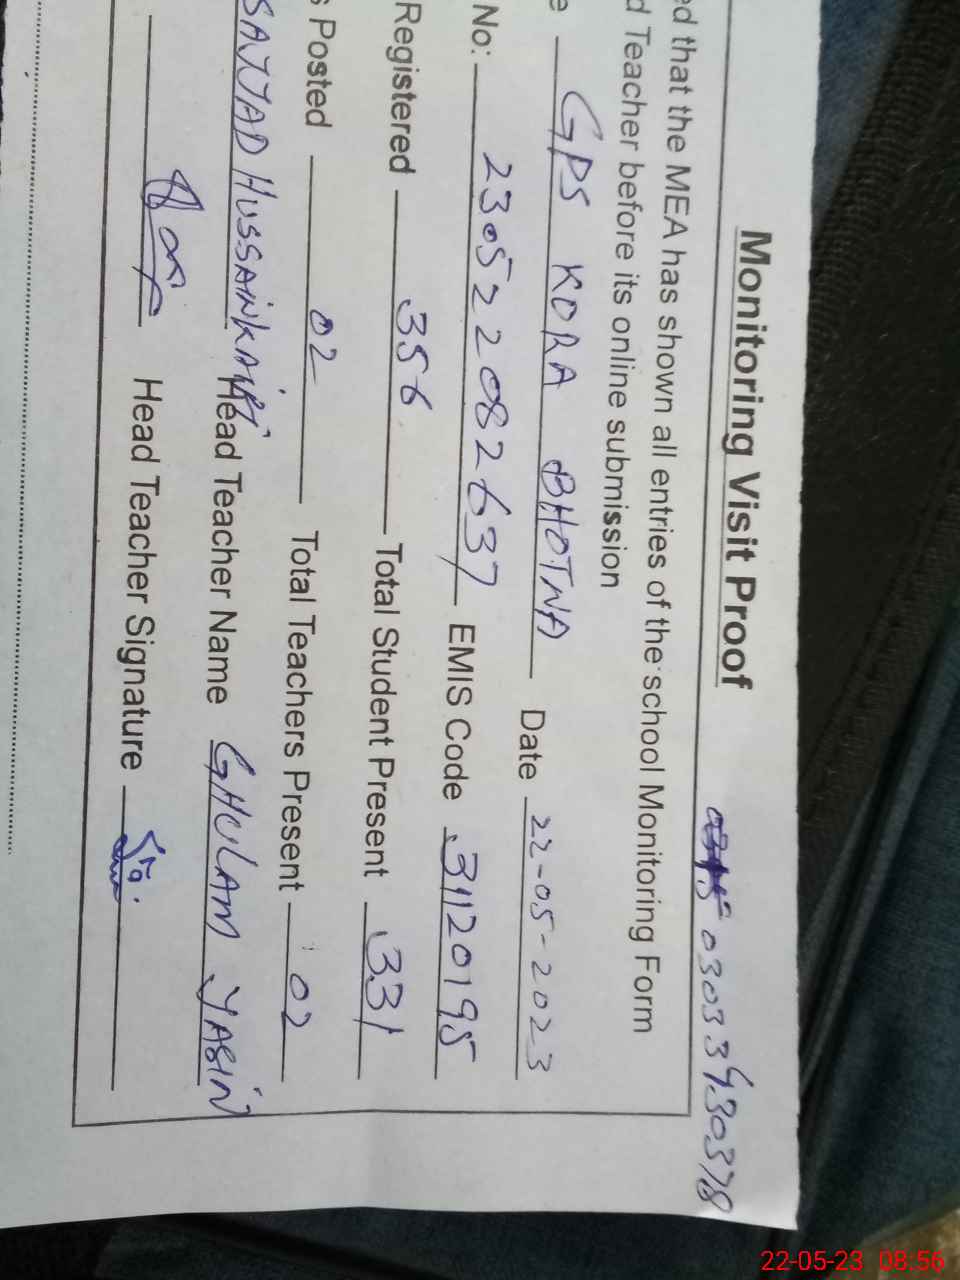 Monitoring Visit Proof
03033430378
ed that the MEA has shown all entries of the school Monitoring Form
d Teacher before its online submission
e GPS KORA BHOTNA Date 22-05-2023
No: 230522082637 EMIS Code 31120195
Registered 356 Total Student Present 331
s Posted 02 Total Teachers Present 02
SAJJAD HUSSAIN Head Teacher Name GHULAM YASIN
Head Teacher Signature
22-05-23 08:56